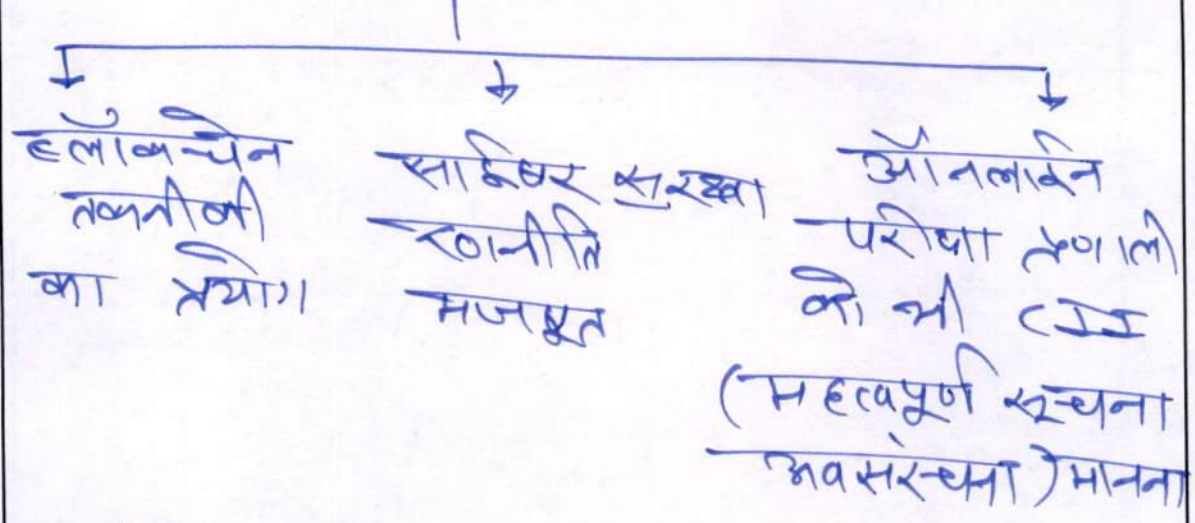 ब्लॉकचेन
तकनीकी
का प्रयोग
साईबर सुरक्षा
रणनीति
मजबूत
ऑनलाईन
परीक्षा प्रणाली
को भी CII
(महत्वपूर्ण सूचना
अवसंरचना) मानना